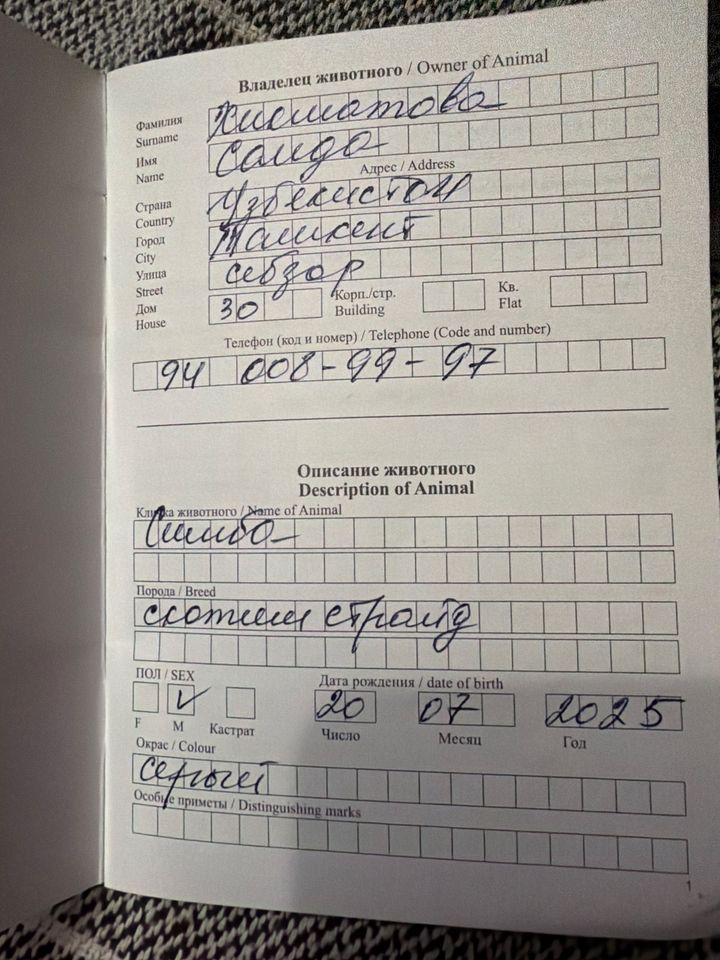 Владелец животного / Owner of Animal
Фамилия
Surname
Хисматова
Имя
Name
Саида
Адрес / Address
Страна
Country
Узбекистон
Город
City
Ташкент
Улица
Street
себзор
Дом
House
30
Корп./стр.
Building
Кв.
Flat
Телефон (код и номер) / Telephone (Code and number)
94 008-99-97
Описание животного
Description of Animal
Кличка животного / Name of Animal
Симба
Порода / Breed
скотиш страйд
ПОЛ / SEX
F M Кастрат
V
Дата рождения / date of birth
20 07 2025
Число Месяц Год
Окрас / Colour
серый
Особые приметы / Distinguishing marks
1